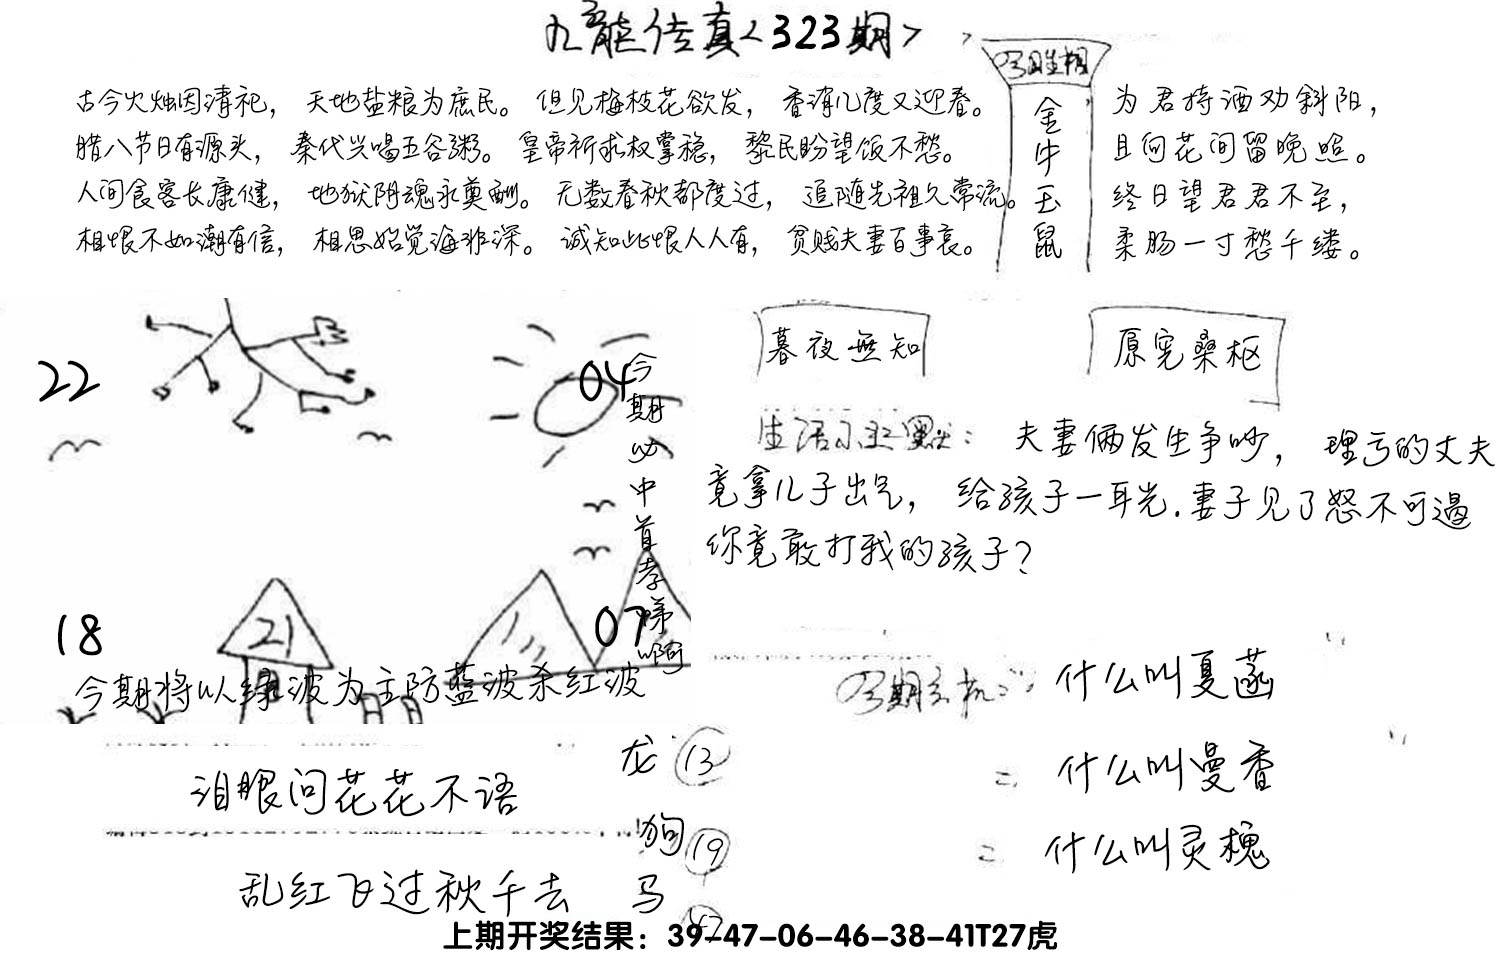 九龍传真<323期>
古今火烛因清祀，天地盐粮为庶民。但见梅枝花欲发，香消几度又迎春。
腊八节日有源头，秦代兴喝五谷粥。皇帝祈求权掌稳，黎民盼望饭不愁。
人间食客长康健，地狱阴魂永奠酬。无数春秋都度过，追随先祖久常流。
相恨不如潮有信，相思始觉海非深。诚知此恨人人有，贫贱夫妻百事哀。
金牛玉鼠
为君持酒劝斜阳，
且向花间留晚照。
终日望君君不至，
柔肠一寸愁千缕。
22
04
今期必中首孝悌啊
18
21
07
今期将以绿波为主防蓝波杀红波
暮夜無知
原宪桑枢
生活小幽默：夫妻俩发生争吵，理亏的丈夫
竟拿儿子出气，给孩子一耳光.妻子见了怒不可遏
你竟敢打我的孩子?
今期玄机:
什么叫夏菡
什么叫曼香
什么叫灵槐
泪眼问花花不语
乱红飞过秋千去
龙 13
狗 19
马
上期开奖结果：39-47-06-46-38-41T27虎